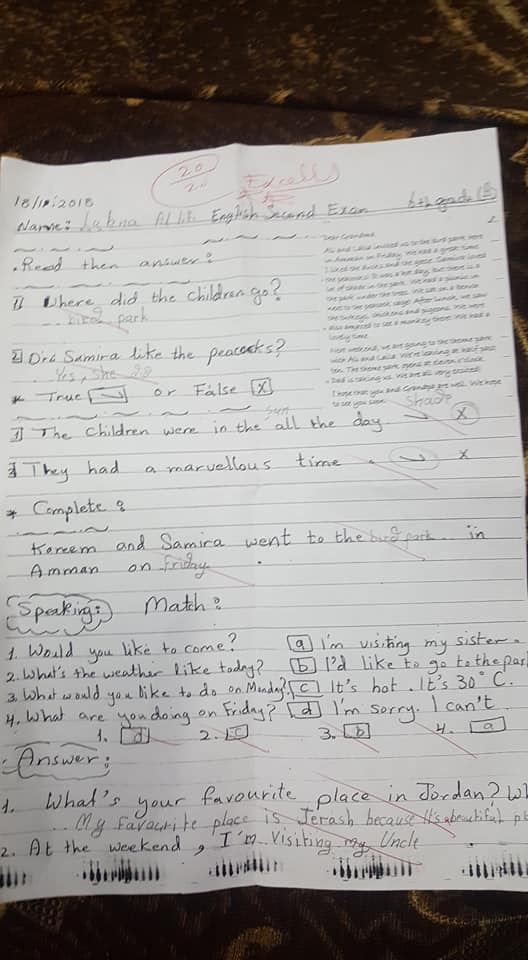 20
20
Excellent
18/11/2018
Name: Lubna English Second Exam 6th grade (B)
Dear Grandma,
Ali and Laila invited us to the bird park here
in Amman on Friday. We had a great time.
I liked the ducks and the geese. Samira loved
the peacocks. It was a hot day, but there is a
lot of shade in the park. We had a picnic in
the park under the trees. We sat on a bench
next to the peacock cage. After lunch, we saw
the turkeys, chickens and pigeons. We were
also surprised to see a monkey there. We had a
lovely time.
Next weekend, we are going to the theme park
with Ali and Laila. We're leaving at half past
ten. The theme park opens at eleven o'clock.
Dad is taking us. We are all very excited!
I hope that you and Grandpa are well. We hope
to see you soon.
Read then answer:
1 Where did the children go?
bird park
2 Did Samira like the peacocks?
Yes, she did
* True ✓ or False X
shade
sun
1 The children were in the all the day ✓ X
2 They had a marvellous time. ✓ X
* Complete:
Kareem and Samira went to the bird park in
Amman on Friday.
Speaking: Match:
1. Would you like to come? a I'm visiting my sister.
2. What's the weather like today? b I'd like to go to the par
3. What would you like to do on Monday? c It's hot. It's 30°C.
4. What are you doing on Friday? d I'm sorry. I can't
1. d 2. c 3. b 4. a
Answer:
1. What's your favourite place in Jordan? Wh
My favourite place is Jerash because It's abeautiful pl
2. At the weekend, I'm visiting my Uncle